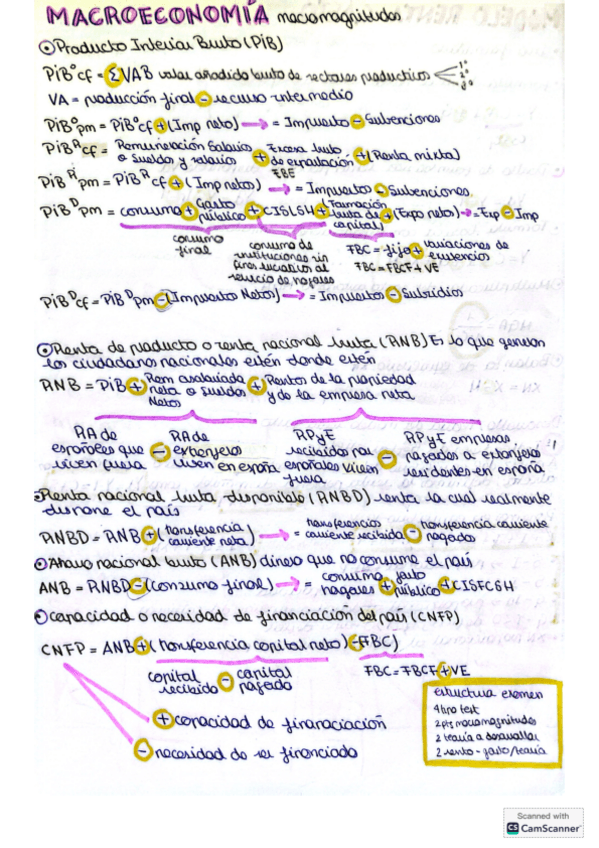 MACROECONOMÍA macromagnitudes
Producto Interior Bruto (PiB)
PiB°cf = ΣVAB valor añadido bruto de sectores productivos 1° 2° 3°
VA = producción final - recurso intermedio
PiB°pm = PiB°cf + (Imp neto) → = Impuesto - Subvenciones
PiBᴿcf = Remuneración Salario o Sueldo y salarios + Excesa bruto de explotación EBE + (Renta mixta)
PiBᴿpm = PiBᴿcf + (Imp netos) → = Impuestos - Subvenciones
PiBᴰpm = consumo + Gasto público + CISLSH + Formación bruta de capital + (Expo neto) → Exp - Imp
consumo final
consumo de instituciones sin fines lucrativos al servicio de hogares
FBC = fijo + variaciones de existencias
FBC = FBCF + VE
PiBᴰcf = PiBᴰpm - (Impuestos Netos) → = Impuestos - Subsidios
Renta de producto o renta nacional bruta (RNB) Es lo que generan
los ciudadanos nacionales estén donde estén
RNB = PiB + Rem asalariada neta o Sueldos Netos + Rentas de la propiedad y de la empresa neta
RA de españoles que viven fuera - RA de extranjeros viven en España
RPyE recibidos por españoles viven fuera - RPyE empresas pagados a extranjeros residentes en españa
Renta nacional bruta disponible (RNBD) renta la cual realmente
dispone el país
RNBD = RNB + (transferencia corriente neta) → = transferencias corriente recibida - transferencia corriente pagadas
Ahorro nacional bruto (ANB) dinero que no consume el país
ANB = RNBD - (Consumo final) → = consumo hogares + gasto público + CISFCSH
capacidad o necesidad de financiación del país (CNFP)
CNFP = ANB + (transferencia capital neto) - FBC)
capital recibido - capital pagado
FBC = FBCF + VE
+ capacidad de financiación
- necesidad de ser financiado
estructura examen
4 tipo test
2 pts macromagnitudes
2 teoría a desarrollar
2 renta - gasto/teoría
Scanned with
CS CamScanner